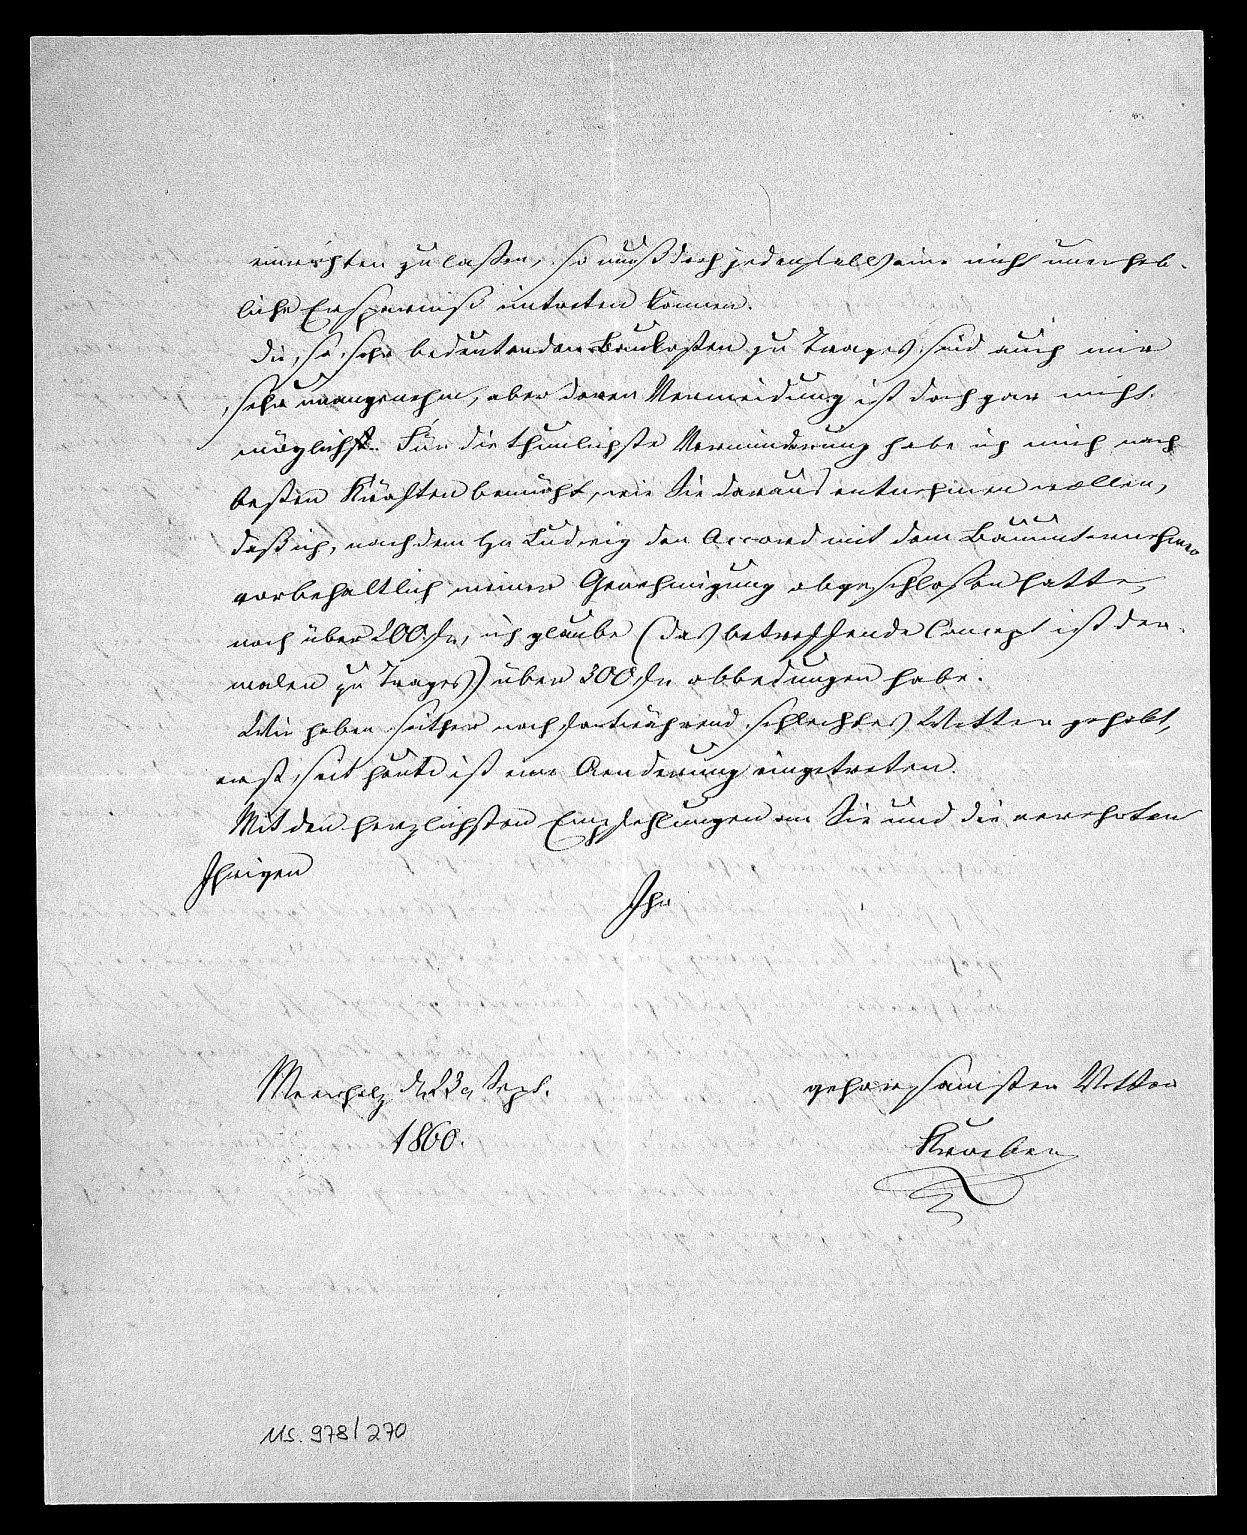 einrichten zu laßen, so muß doch jedenfalls eine nicht unerheb-
liche Ersparniß eintreten können.
Die so sehr bedeutenden Baukosten zu Trages sind auch mir
sehr unangenehm, aber deren Vermeidung ist doch gar nicht
möglich. Für die thunlichste Verminderung habe ich mich nach
besten Kräften bemüht, wie Sie daraus entnehmen wollen,
daß ich, nachdem Hr Ludwig den Accord mit dem Bauunternehmer
vorbehaltlich meiner Genehmigung abgeschloßen hatte,
noch über 200 fr, ich glaube (das betreffende Concept ist der-
malen zu Trages) über 300 fr abbedungen habe.
Wir haben seither noch fortwährend schlechtes Wetter gehabt,
erst seit heute ist eine Aenderung eingetreten.
Mit den herzlichsten Empfehlungen an Sie und die verehrten
Ihrigen
Ihr
Meerholz Sept.
1860.
gehorsamster Vetter
Kroeber
Ms. 978/270